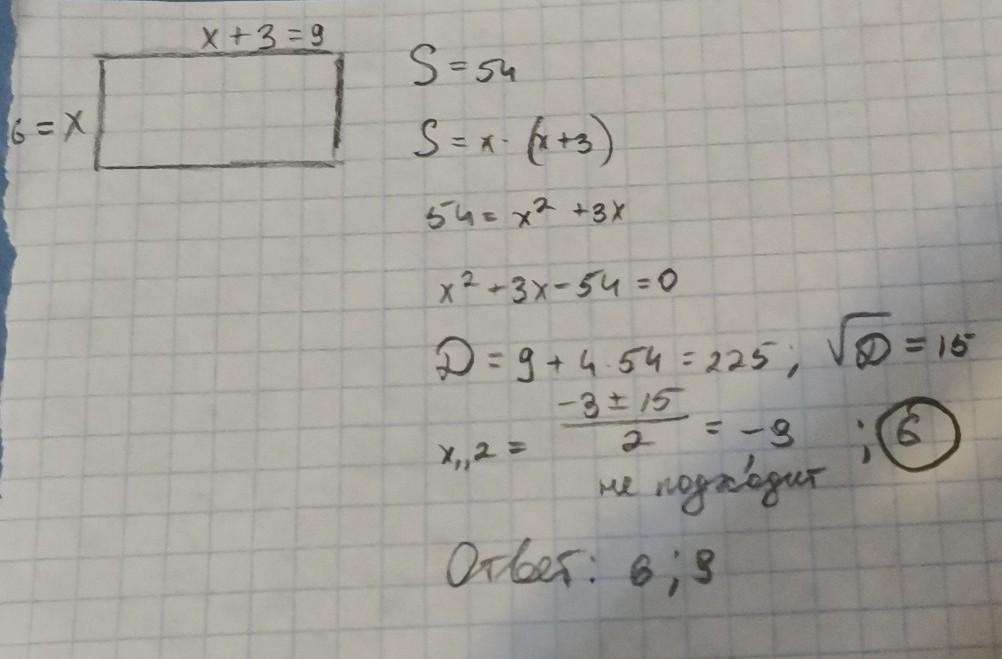 x + 3 = 9
6 = x
S = 54
S = x · (x+3)
54 = x² + 3x
x² + 3x - 54 = 0
D = 9 + 4 · 54 = 225; √D = 15
x₁,₂ = (-3 ± 15)/2 = -9 ; 6
не подходит
Ответ: 6; 9